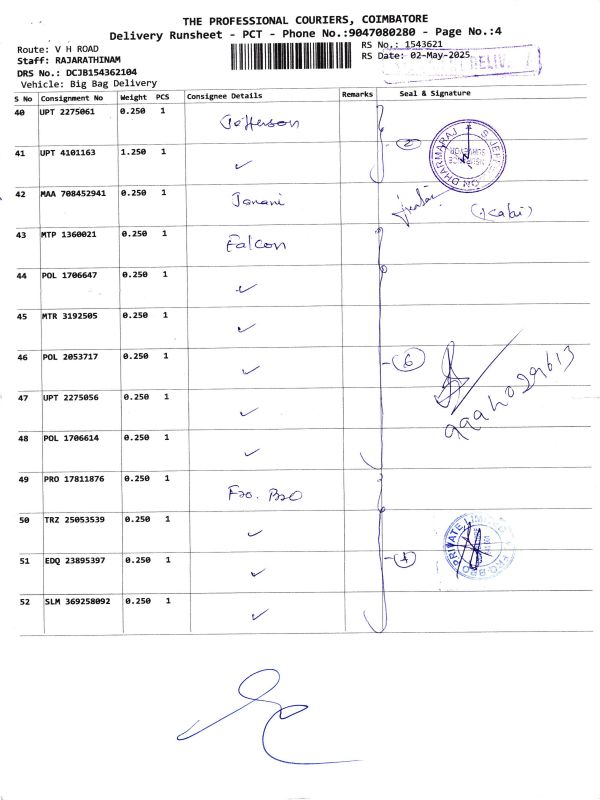 THE PROFESSIONAL COURIERS, COIMBATORE
Delivery Runsheet - PCT - Phone No.:9047080280 - Page No.:4
Route: V H ROAD
RS No.: 1543621
Staff: RAJARATHINAM
RS Date: 02-May-2025
DRS No.: DCJB154362104
DELIV.
Vehicle: Big Bag Delivery
S No Consignment No Weight PCS Consignee Details Remarks Seal & Signature
40 UPT 2275061 0.250 1 Jefferson
41 UPT 4101163 1.250 1 ✓ 2
42 MAA 708452941 0.250 1 Janani (Kabi)
43 MTP 1360021 0.250 1 Falcon
44 POL 1706647 0.250 1 ✓
45 MTR 3192505 0.250 1 ✓
46 POL 2053717 0.250 1 ✓ 6
47 UPT 2275056 0.250 1 ✓
48 POL 1706614 0.250 1 ✓
49 PRO 17811876 0.250 1 Fro. Bro
50 TRZ 25053539 0.250 1 ✓
51 EDQ 23895397 0.250 1 ✓ 4
52 SLM 369258092 0.250 1 ✓